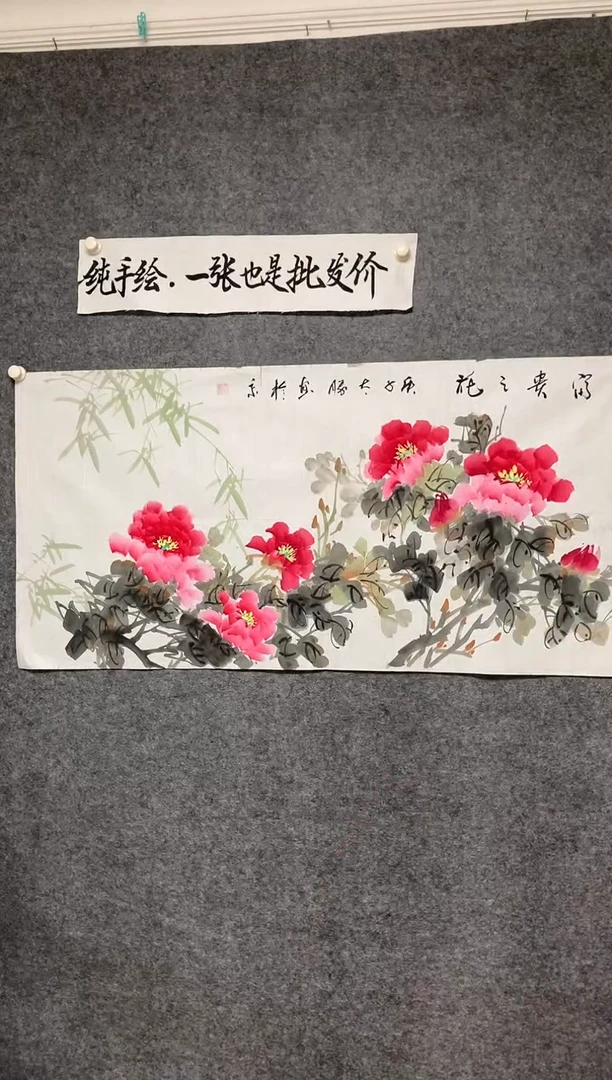 纯手绘.一张也是批发价
富贵之花 庚子大 画於京